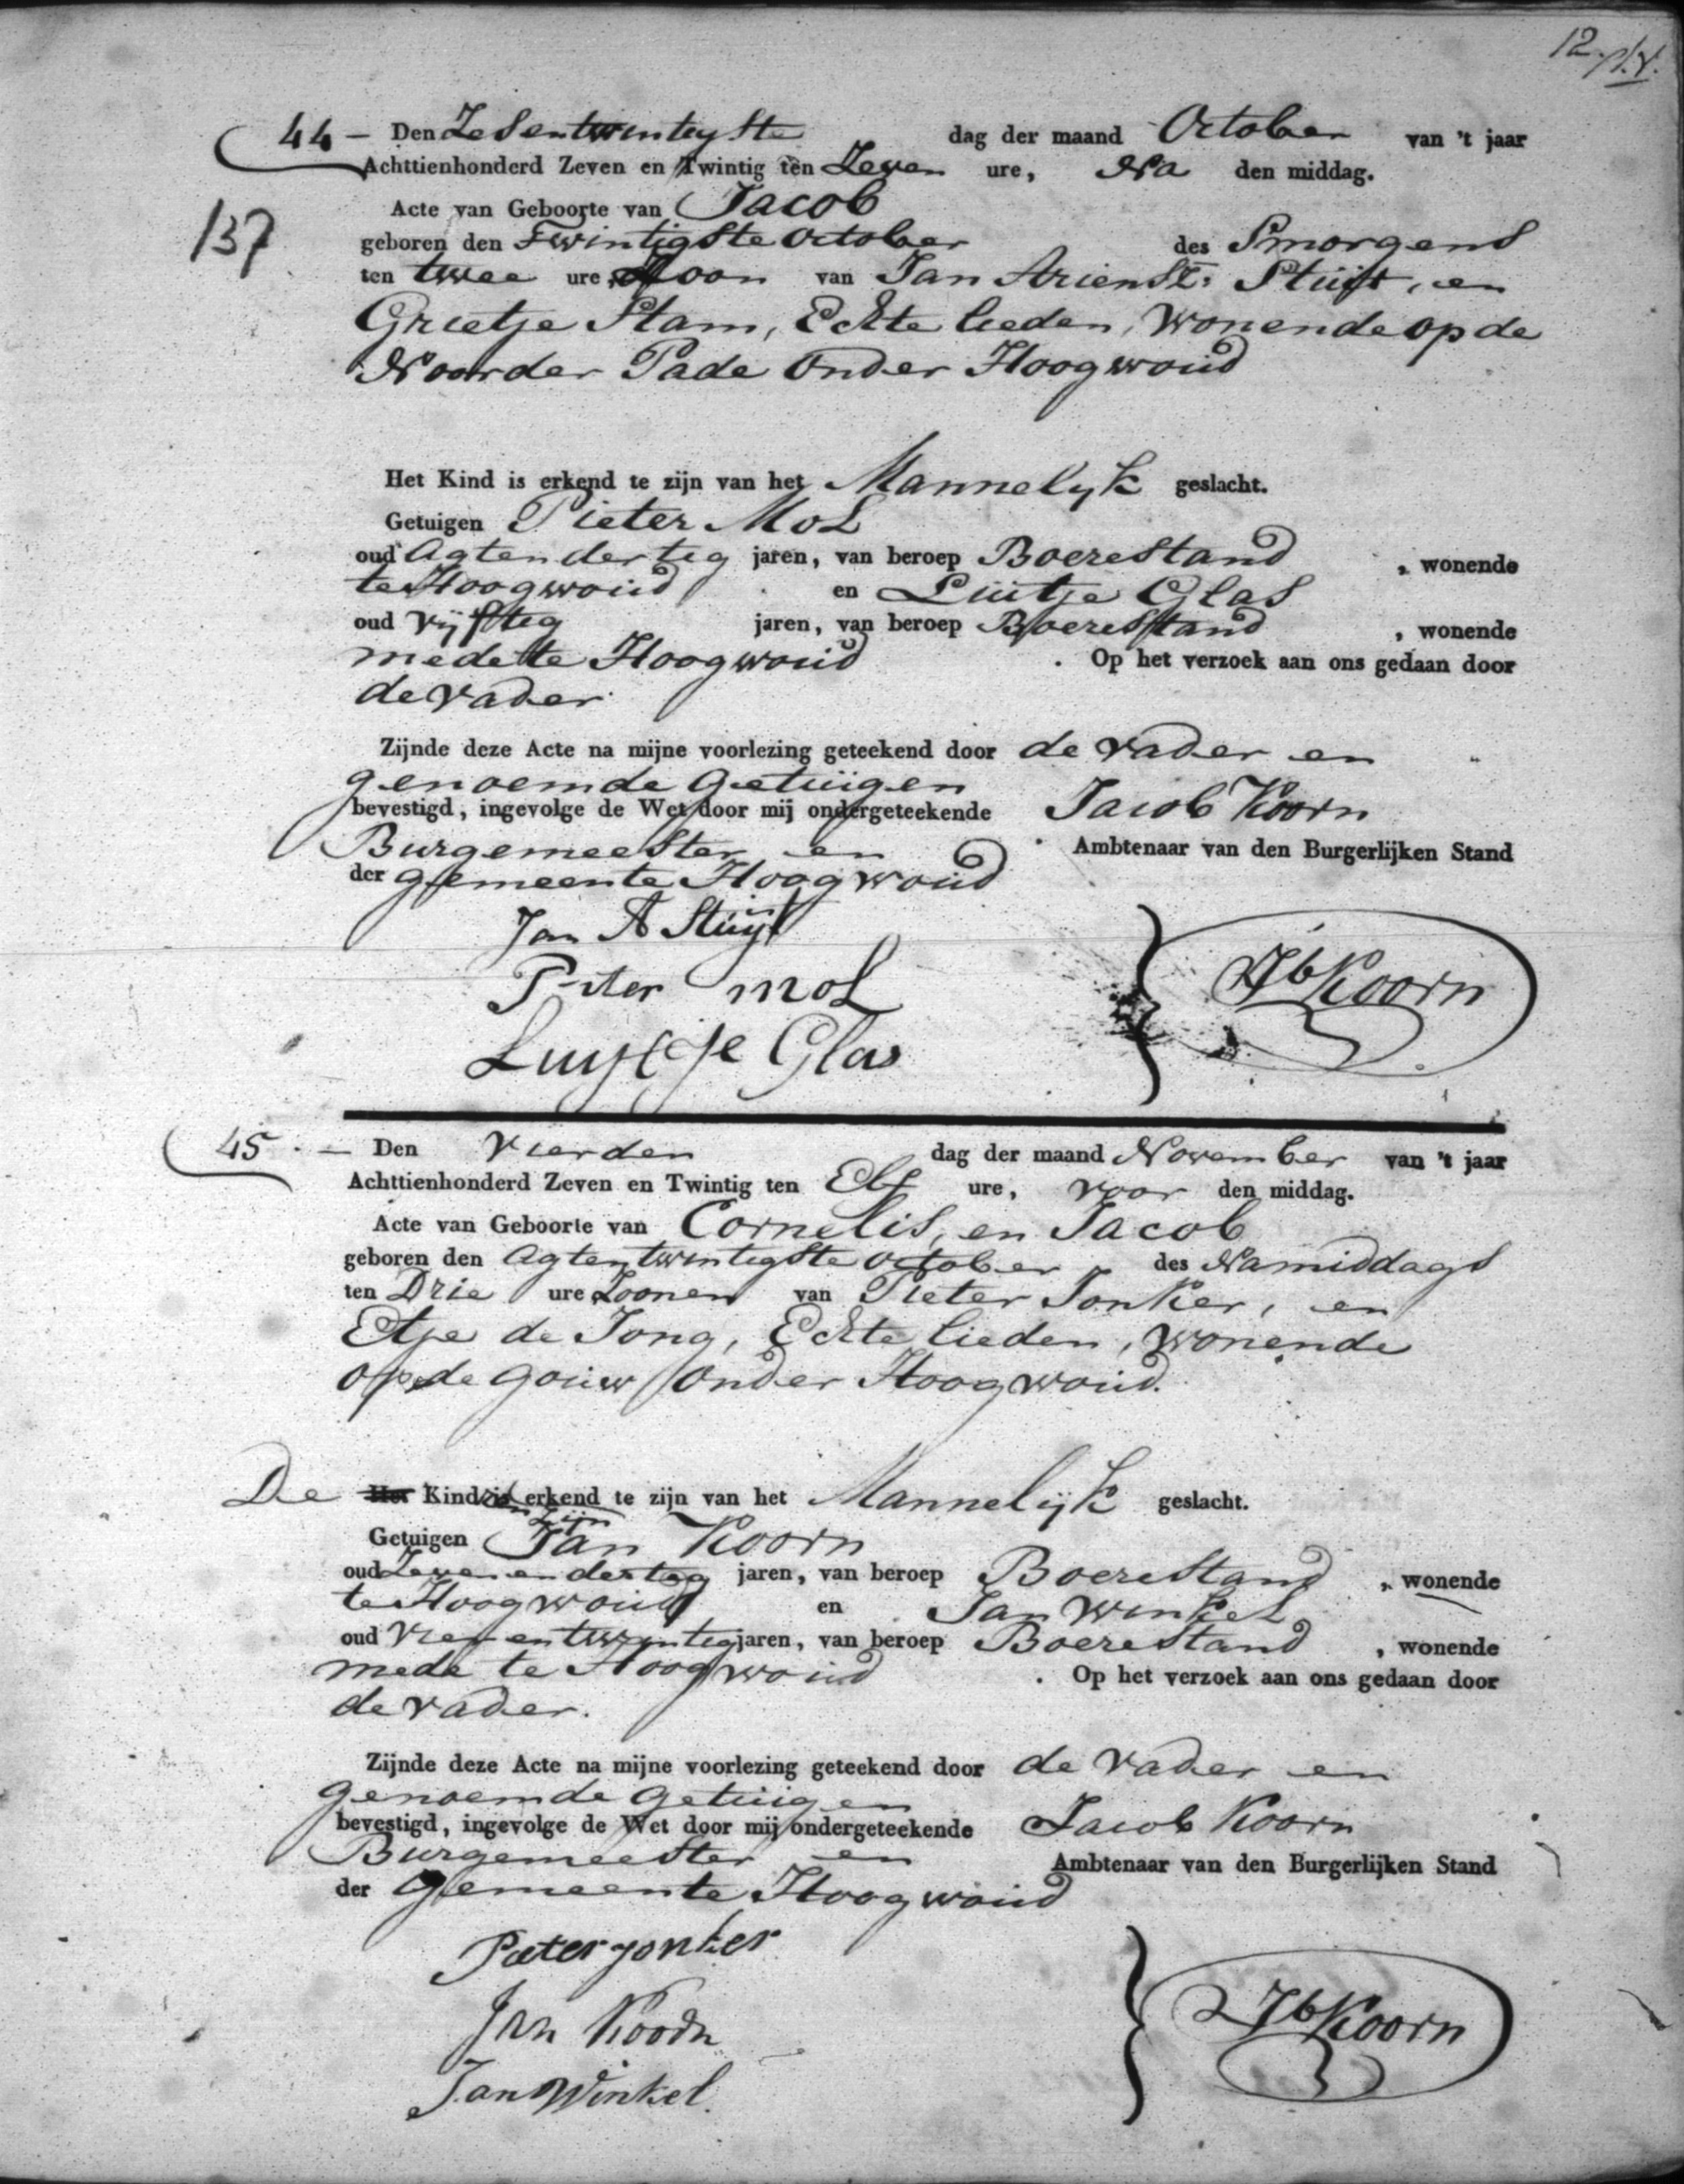 12.
44 - Den Zesentwintigste dag der maand October van 't jaar
Achttienhonderd Zeven en Twintig ten Zeven ure, Na den middag.
137
Acte van Geboorte van Jacob
geboren den Twintigste October des Smorgens
ten twee ure, Zoon van Jan Ariensz: Stuijt, en
Grietje Stam, Echte lieden, Wonende op de
Noorder Pade Onder Hoogwoud
Het Kind is erkend te zijn van het Mannelijk geslacht.
Getuigen Pieter Mol
oud Agtendertig jaren, van beroep Boerestand , wonende
te Hoogwoud en Luitje Glas
oud Vijftig jaren, van beroep Boerestand , wonende
mede te Hoogwoud . Op het verzoek aan ons gedaan door
de vader
Zijnde deze Acte na mijne voorlezing geteekend door de vader en
genoemde Getuigen
bevestigd, ingevolge de Wet door mij ondergeteekende Jacob Koorn
Burgemeester en Ambtenaar van den Burgerlijken Stand
der gemeente Hoogwoud
Jan A Stuijt
Pieter Mol
Luijtje Glas
Jb Koorn
45. - Den Vierden dag der maand November van 't jaar
Achttienhonderd Zeven en Twintig ten Elf ure, voor den middag.
Acte van Geboorte van Cornelis, en Jacob
geboren den Agtentwintigste October des Namiddags
ten Drie ure Zoonen van Pieter Jonker, en
Etje de Jong, Echte lieden, Wonende
op de Gouw Onder Hoogwoud.
De Het Kind is erkend te zijn van het Mannelijk geslacht.
zijn
Getuigen Jan Koorn
oud Zevenendertig jaren, van beroep Boerestand , wonende
te Hoogwoud en Jan Winkel
oud Vierentwintig jaren, van beroep Boerestand , wonende
mede te Hoogwoud . Op het verzoek aan ons gedaan door
de vader.
Zijnde deze Acte na mijne voorlezing geteekend door de vader en
genoemde Getuigen
bevestigd, ingevolge de Wet door mij ondergeteekende Jacob Koorn
Burgemeester en Ambtenaar van den Burgerlijken Stand
der Gemeente Hoogwoud
Pieter Jonker
Jan Koorn
Jan Winkel.
Jb Koorn